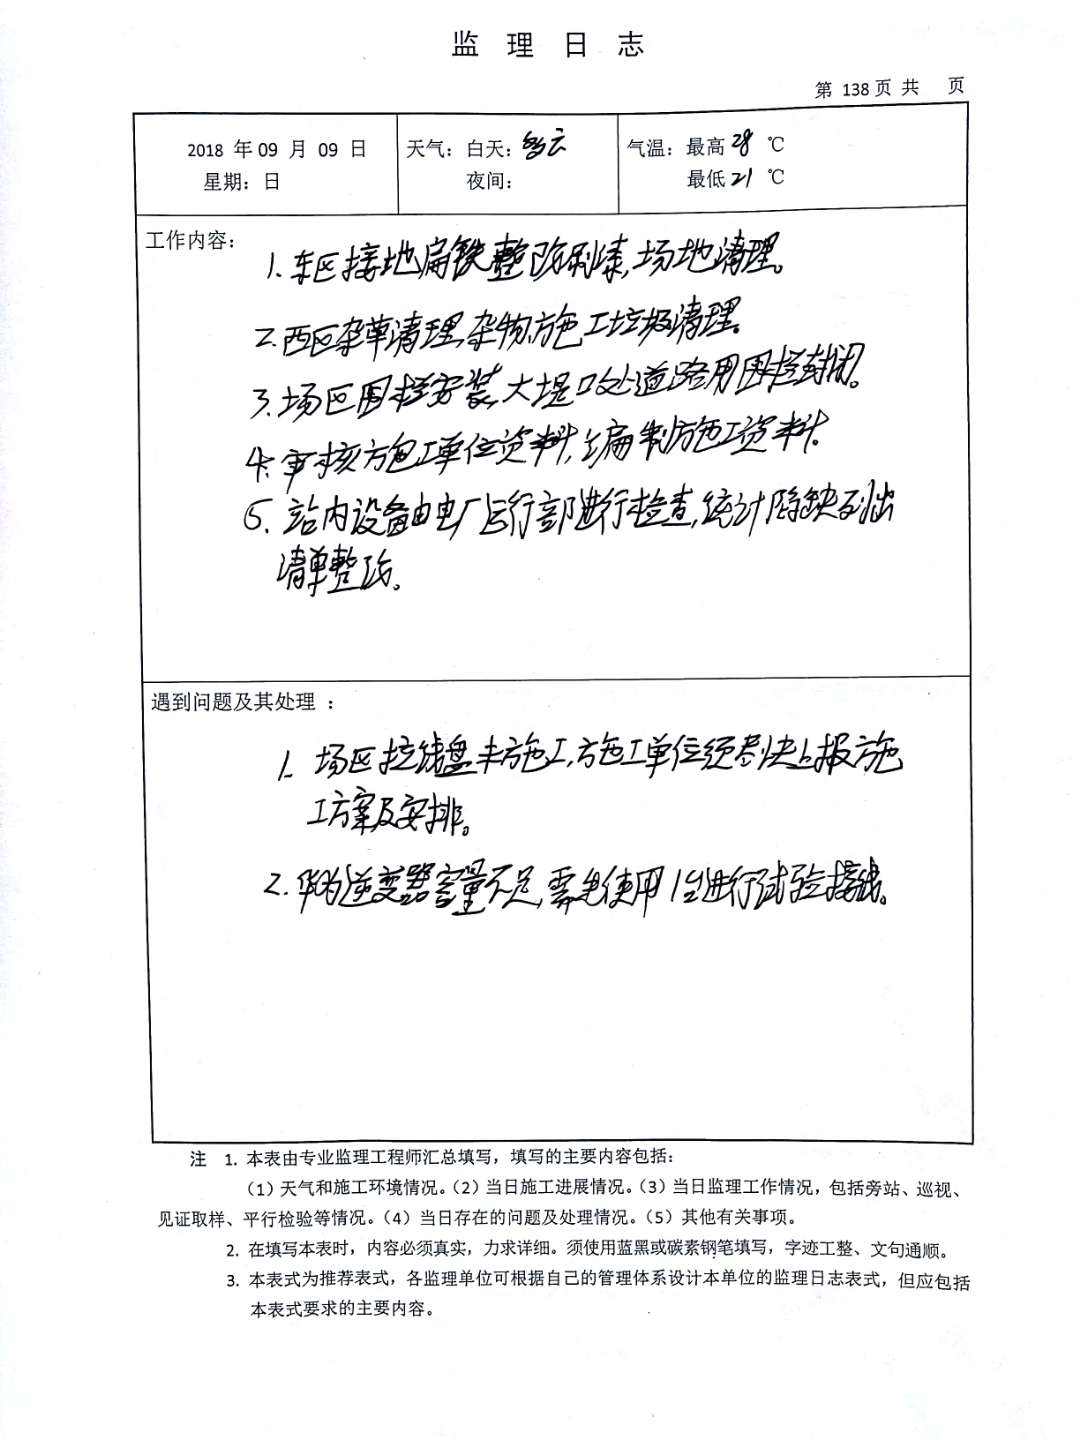 监 理 日 志
第 138 页 共 页
2018 年 09 月 09 日
星期：日
天气：白天：多云
夜间：
气温：最高 28 ℃
最低 21 ℃
工作内容：
1. 东区接地扁铁整改刷漆，场地清理。
2. 西区杂草清理，杂物，施工垃圾清理。
3. 场区围栏安装，大堤口处道路用围栏封闭。
4. 审核施工单位资料，编制施工资料。
5. 站内设备由电厂运行部进行检查，统计隐缺列出
清单整改。
遇到问题及其处理 ：
1. 场区拉线盘未施工，施工单位须尽快上报施
工方案及安排。
2. 华为逆变器容量不足，需先使用1台进行试验接线。
注 1. 本表由专业监理工程师汇总填写，填写的主要内容包括：
（1）天气和施工环境情况。（2）当日施工进展情况。（3）当日监理工作情况，包括旁站、巡视、
见证取样、平行检验等情况。（4）当日存在的问题及处理情况。（5）其他有关事项。
2. 在填写本表时，内容必须真实，力求详细。须使用蓝黑或碳素钢笔填写，字迹工整、文句通顺。
3. 本表式为推荐表式，各监理单位可根据自己的管理体系设计本单位的监理日志表式，但应包括
本表式要求的主要内容。